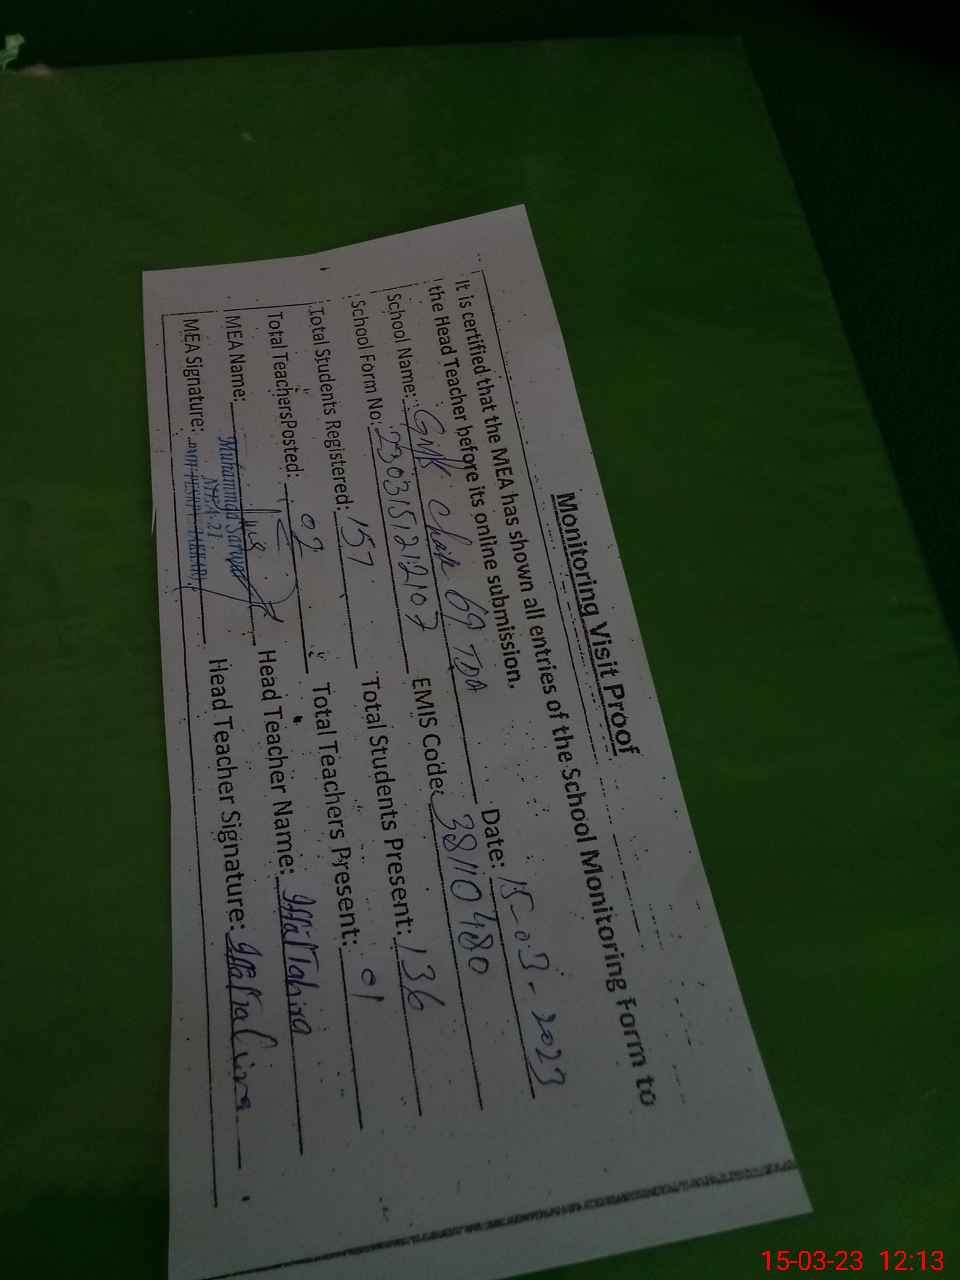 Monitoring Visit Proof
It is certified that the MEA has shown all entries of the School Monitoring Form to
the Head Teacher before its online submission.
School Name: GMPS Chak 69 TDA Date: 15-03-2023
School Form No: 2303151212107 EMIS Code: 38110480
Total Students Registered: 157 Total Students Present: 136
Total Teachers Posted: 02 Total Teachers Present: 01
MEA Name: Muhammad Head Teacher Name: Iffat Tahira
MEA Signature: Head Teacher Signature: Iffat Tahira
15-03-23 12:13